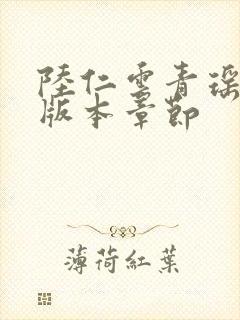 陸仁雲青瑶
版本章節
薄荷紅葉